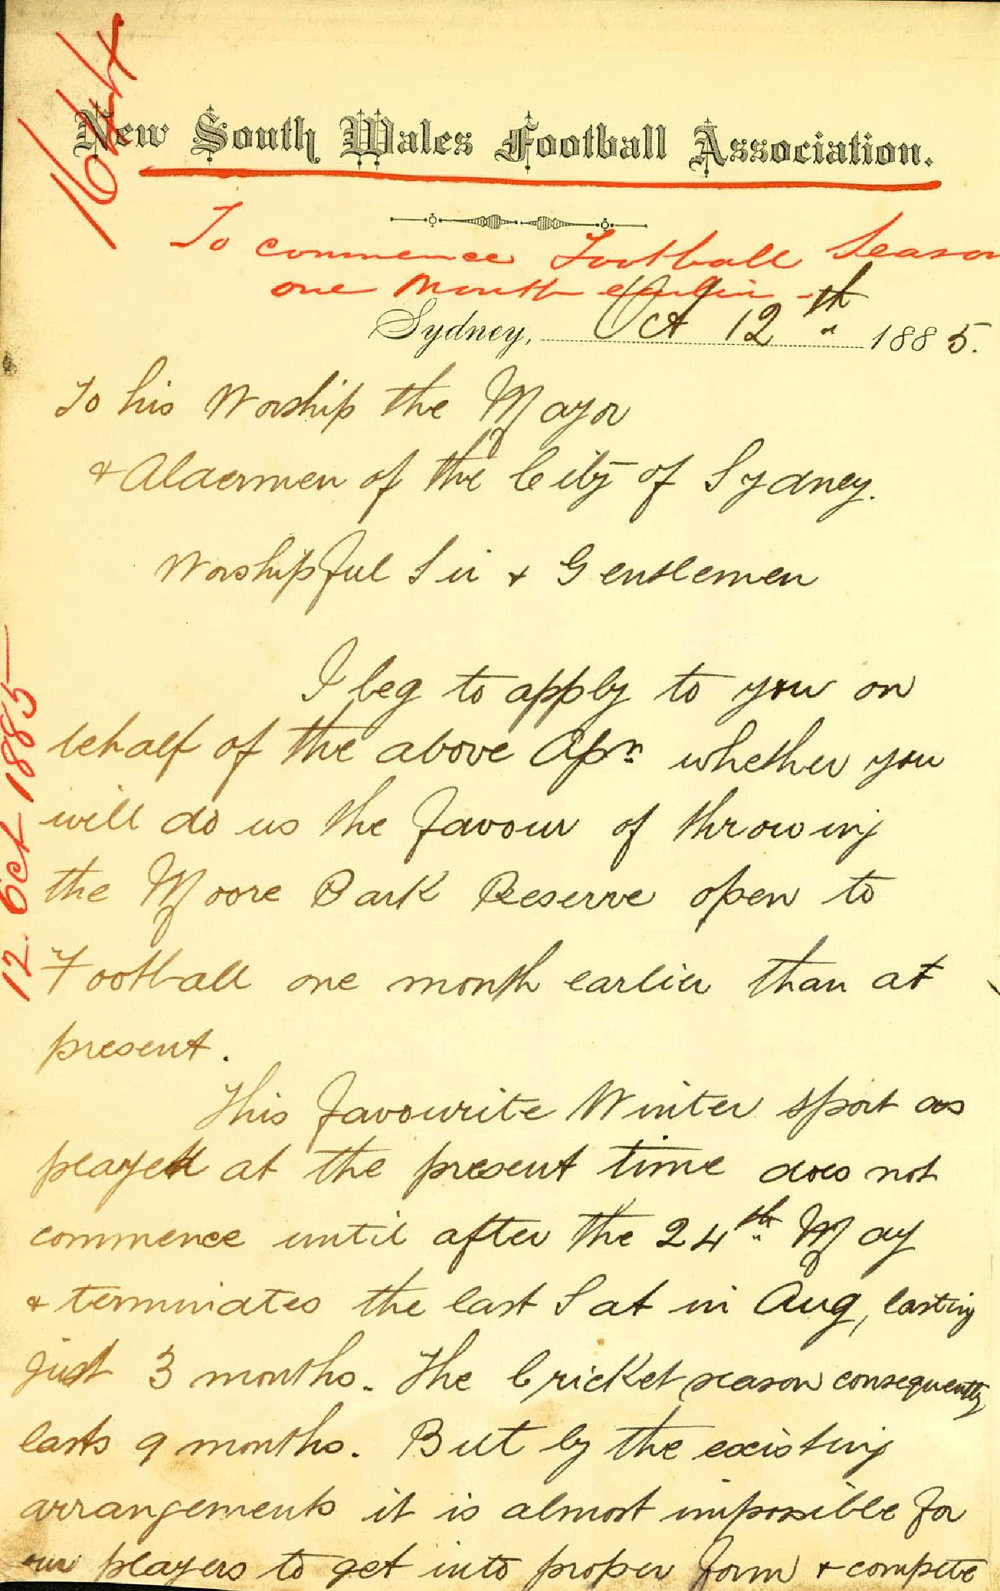 1644
New South Wales Football Association.
To commence Football Season
one Month earlier -
Sydney, Oct 12th 1885.
To his Worship the Mayor
& Aldermen of the City of Sydney.
Worshipful Sir & Gentlemen
I beg to apply to you on
behalf of the above Assn whether you
will do us the favour of throwing
the Moore Park Reserve open to
Football one month earlier than at
present.
This favourite Winter sport as
played at the present time does not
commence until after the 24th May
& terminates the last Sat in Aug, lasting
just 3 months. The Cricket season consequently
lasts 9 months. But by the existing
arrangements it is almost impossible for
our players to get into proper form & compete
12. Oct 1885